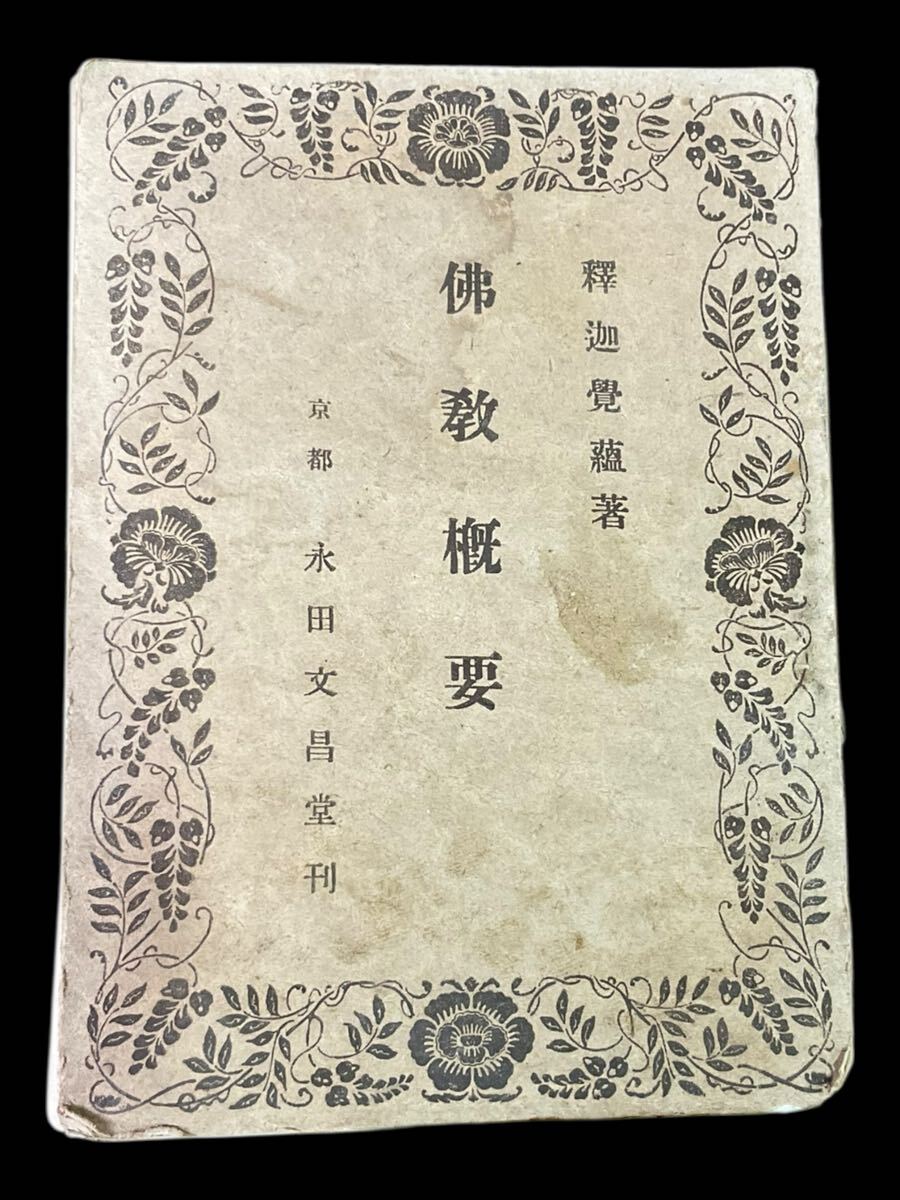 釋迦覺蘊著
佛教概要
京都 永田文昌堂刊